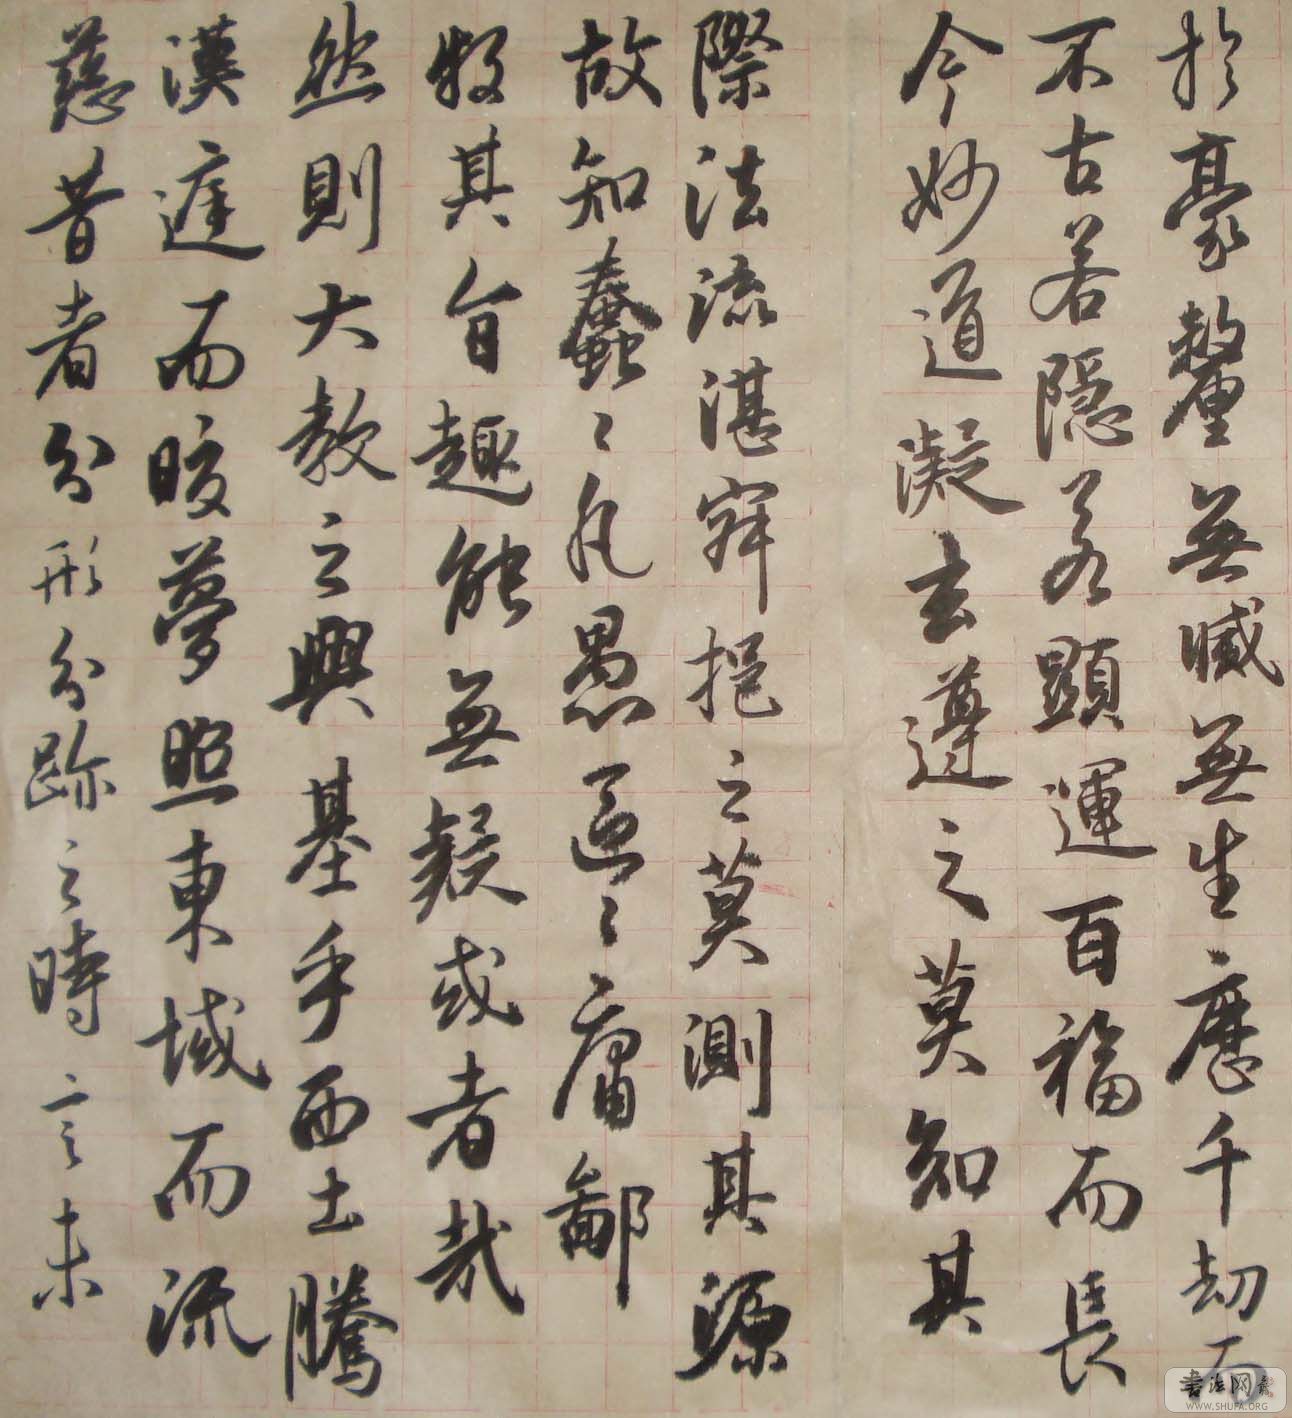 於豪釐無滅無生歷千劫而
不古若隱若顯運百福而長
今妙道凝玄遵之莫知其
際法流湛寂挹之莫測其源
故知蠢〻凡愚區〻庸鄙
投其旨趣能無疑或者哉
然則大教之興基乎西土騰
漢庭而晈夢照東域而流
慈昔者分形分跡之時言未
書法网
WWW.SHUFA.ORG